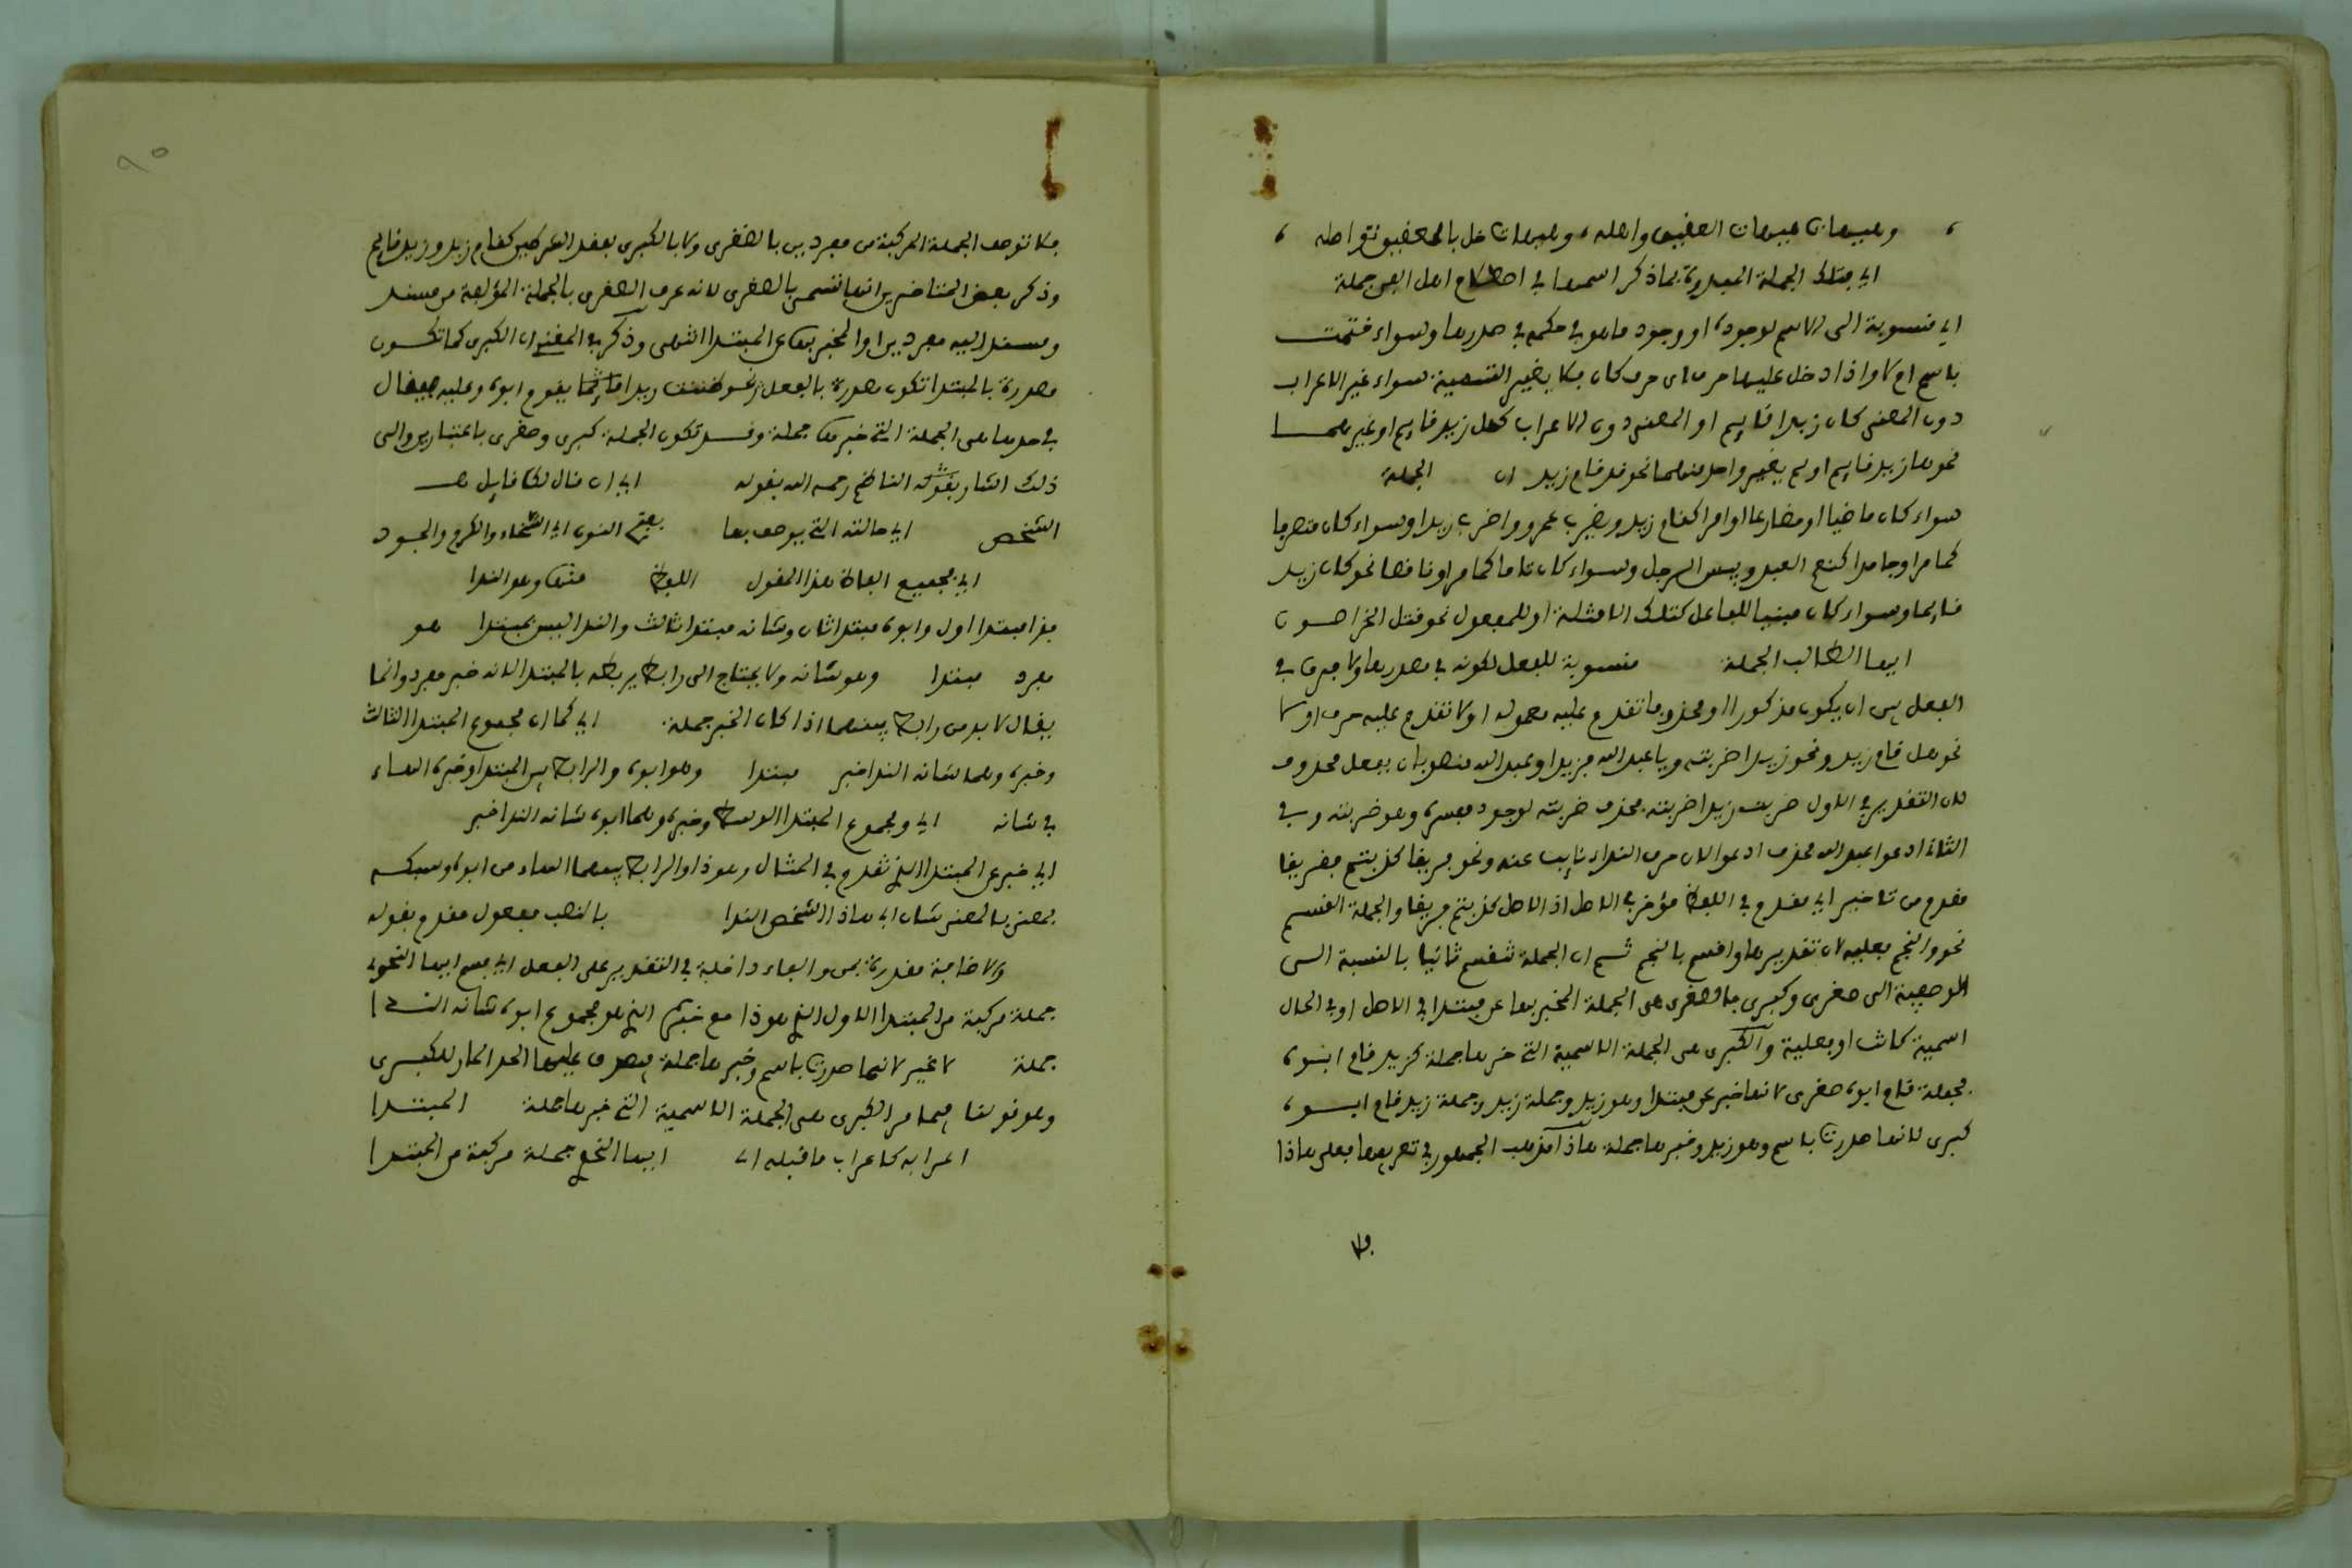 ، وهيهات هيهات العقيق واهله ، وهيهات خل بالعقيق نواصله ،
اي فتلك الجملة المبدوءة بما ذكر اسمها في اصطلاح اهل الفن جملة
اي منسوبة الى الاسم لوجوده او وجود ما هو في حكمه في صدرها وسواء ختمت
باسم ام لا واذا دخل عليها حرف اي حرف كان فلا يغير التسمية سواء غير الاعراب
دون المعنى كان زيدا قايم او المعنى دون الاعراب كهل زيد قايم او غيرهما
نحو ما زيد قايم او لم يغير واحد منهما نحو قد قام زيد ان الجملة
سواء كان ماضيا او مضارعا او امرا كقام زيد ويضرب عمرو واضرب زيدا وسواء كان متصرفا
كما مر او جامدا كنعم العبد وبيس الرجل وسواء كان تاما كما مر او ناقصا نحو كان زيد
قايما وسواء كان مبنيا للفاعل كتلك الامثلة او للمفعول نحو قتل الخراصون
ايها الطالب الجملة منسوبة للفعل لكونه في صدرها ولا فرق في
الفعل بين ان يكون مذكورا او محذوفا تقدم عليه معموله او لا تقدم عليه حرف او لا
نحو هل قام زيد ونحو زيدا ضربته ويا عبد الله فزيدا وعبد الله منصوبان بفعل محذوف
لان التقدير في الاول ضربت زيدا ضربته فحذف ضربت لوجود مفسره وهو ضربته وفي
الثاني ادعوا عبد الله فحذف ادعوا لان حرف النداء نايب عنه ونحو فريقا كذبتم ففريقا
مقدم من تاخير اي مقدم في اللفظ مؤخر في الاصل اذ الاصل كذبتم فريقا والجملة القسم
نحو والنجم فعلية لان تقديرها واقسم بالنجم ثم ان الجملة تنقسم ثانيا بالنسبة الى
الوصفية الى صغرى وكبرى فالصغرى هي الجملة المخبر بها عن مبتدا في الاصل او في الحال
اسمية كانت او فعلية والكبرى هي الجملة الاسمية التي خبرها جملة كزيد قام ابوه
فجملة قام ابوه صغرى لانها خبر عن مبتدا وهو زيد وجملة زيد وجملة زيد قام ابوه
كبرى لانها صدرت باسم وهو زيد وخبرها جملة هاذا مذهب الجمهور في تعريفها فعلى هاذا
فلا
فلا توصف الجملة المركبة من مفردين بالصغرى ولا بالكبرى لفقد الشرطين كقام زيد وزيد قايم
وذكر بعض المتاخرين انها تسمى بالصغرى لانه عرف الصغرى بالجملة المؤلفة من مسند
ومسند اليه مفردين او المخبر بها عن المبتدا انتهى وذكر في المغني ان الكبرى كما تكون
مصدرة بالمبتدا تكون مصدرة بالفعل نحو ظننت زيدا قايما يقوم ابوه وعليه فيقال
في حدها هي الجملة التي خبرها جملة وقد تكون الجملة كبرى وصغرى باعتبارين والى
ذلك اشار الناظم رحمه الله بقوله اي ان قال لك قايل
الشخص اي حالته التي يوصف بها بفتح النون اي السخاء والكرم والجود
اي فجميع الفاظ هذا المقول اللفظ منها وهو الندا
فذا مبتدا اول وابوه مبتدا ثان وشانه مبتدا ثالث والندا ليس بمبتدا هو
مفرد مبتدا وهو شانه ولا يحتاج الى رابط يربطه بالمبتدا لانه خبر مفرد وانما
يقال لا بد من رابط بينهما اذا كان الخبر جملة اي كما ان مجموع المبتدا الثالث
وخبره وهما شانه الندا خبر مبتدا وهو ابوه والرابط بين المبتدا وخبره الهاء
في شانه اي ومجموع المبتدا الوسط وخبره وهما ابوه شانه الندا خبر
اي خبر عن المبتدا الذي تقدم في المثال وهو ذا والرابط بينهما الهاء من ابوه وسبكه
بمعنى شان ابي هاذا الشخص الندا بالنصب مفعول مقدم بقوله
والاضافة مقدرة بمن والفاء داخلة في التقدير على الفعل اي فسم ايها النحوي
جملة مركبة من المبتدا الاول الذي هو ذا مع خبره الذي هو مجموع ابوه شانه الندا
جملة لا غير لانها صدرت باسم وخبرها جملة فيصدق عليها الحد المار للكبرى
وهو قولنا فيما مر الكبرى هي الجملة الاسمية التي خبرها جملة المبتدا
اعرابه كاعراب ما قبله اي ايها النحوي جملة مركبة من المبتدا